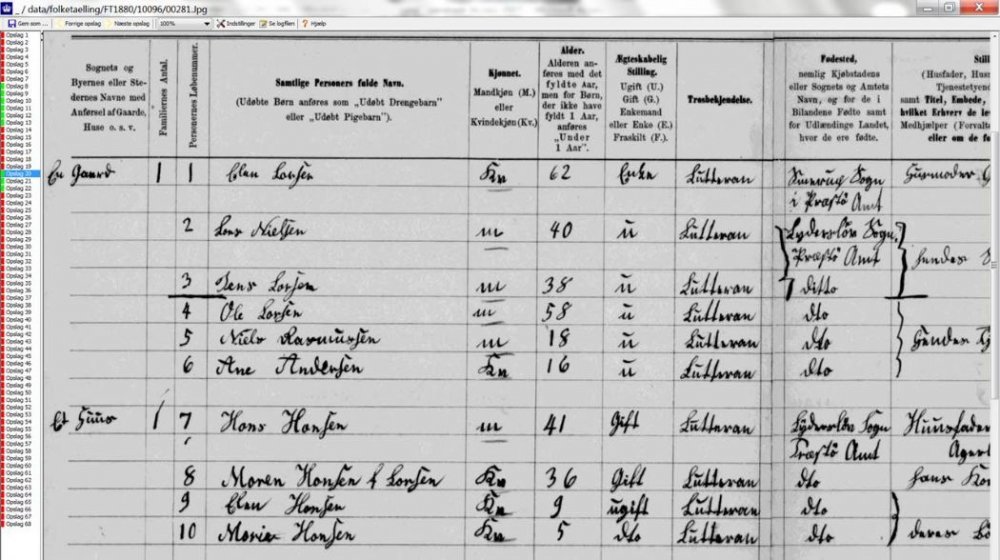 _ / data/folketaelling/FT1880/10096/00281.Jpg
Gem som ... Forrige opslag Næste opslag 100% Indstillinger Se logfilen Hjælp
Opslag 1
Opslag 2
Opslag 3
Opslag 4
Opslag 5
Opslag 6
Opslag 7
Opslag 8
Opslag 9
Opslag 10
Opslag 11
Opslag 12
Opslag 13
Opslag 14
Opslag 15
Opslag 16
Opslag 17
Opslag 18
Opslag 19
Opslag 20
Opslag 21
Opslag 22
Opslag 23
Opslag 24
Opslag 25
Opslag 26
Opslag 27
Opslag 28
Opslag 29
Opslag 30
Opslag 31
Opslag 32
Opslag 33
Opslag 34
Opslag 35
Opslag 36
Opslag 37
Opslag 38
Opslag 39
Opslag 40
Opslag 41
Opslag 42
Opslag 43
Opslag 44
Opslag 45
Opslag 46
Opslag 47
Opslag 48
Opslag 49
Opslag 50
Opslag 51
Opslag 52
Opslag 53
Opslag 54
Opslag 55
Opslag 56
Opslag 57
Opslag 58
Opslag 59
Opslag 60
Opslag 61
Opslag 62
Opslag 63
Opslag 64
Opslag 65
Opslag 66
Opslag 67
Opslag 68
Sognets og
Byernes eller Ste-
dernes Navne med
Anførsel af Gaarde,
Huse o. s. v.
Familiernes Antal.
Personernes Løbenummer.
Samtlige Personers fulde Navn.
(Udøbte Børn anføres som „Udøbt Drengebarn"
eller „Udøbt Pigebarn").
Kjønnet.
Mandkjøn (M.)
eller
Kvindekjøn (Kv.)
Alder.
Alderen an-
føres med det
fyldte Aar,
men for Børn,
der ikke have
fyldt 1 Aar,
anføres
„Under
1 Aar".
Ægteskabelig
Stilling.
Ugift (U.)
Gift (G.)
Enkemand
eller Enke (E.)
Fraskilt (F.).
Trosbekjendelse.
Fødested,
nemlig Kjøbstadens
eller Sognets og Amtets
Navn, og for de i
Bilandene Fødte samt
for Udlændinge Landet,
hvor de ere fødte.
Still
(Husfader, Hus
Tjenestetyend
samt Titel, Embede,
hvilket Erhverv de le
Medhjælper (Forvalte
eller om de f
En Gaard 1 1 Elen Larsen Kv 62 Enke Lutteran Sogn Huusmoder
i Præstö Amt
2 Lars Nielsen m 40 u Lutteran Lyderslöv Sogn,
Præstö Amt hendes
3 Jens Larsen m 38 u Lutteran ditto
4 Ole Larsen m 58 u Lutteran dto
5 Niels Rasmussen m 18 u Lutteran dto hendes
6 Ane Andersen Kv 16 u Lutteran dto
Et Huus 1 7 Hans Hansen m 41 Gift Lutteran Lyderslöv Sogn Huusfader
Præstö Amt
8 Maren Hansen f Larsen Kv 36 Gift Lutteran dto hans Kon
9 Elen Hansen Kv 9 ugift Lutteran dto
10 Marie Hansen Kv 5 dto Lutteran dto deres